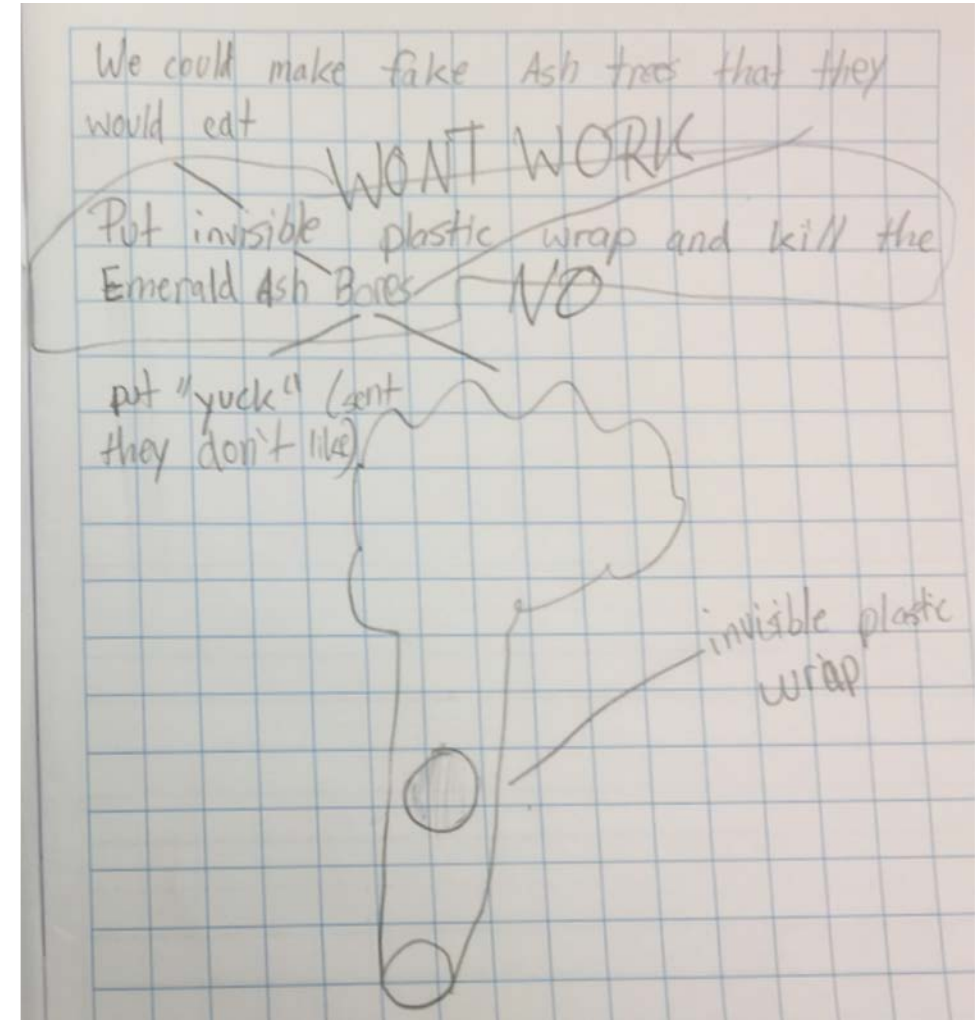 We could make fake Ash trees that they
would eat
WONT WORK
Put invisible plastic wrap and kill the
Emerald Ash Bores
NO
put "yuck" (sent
they don't like)
invisible plastic
wrap